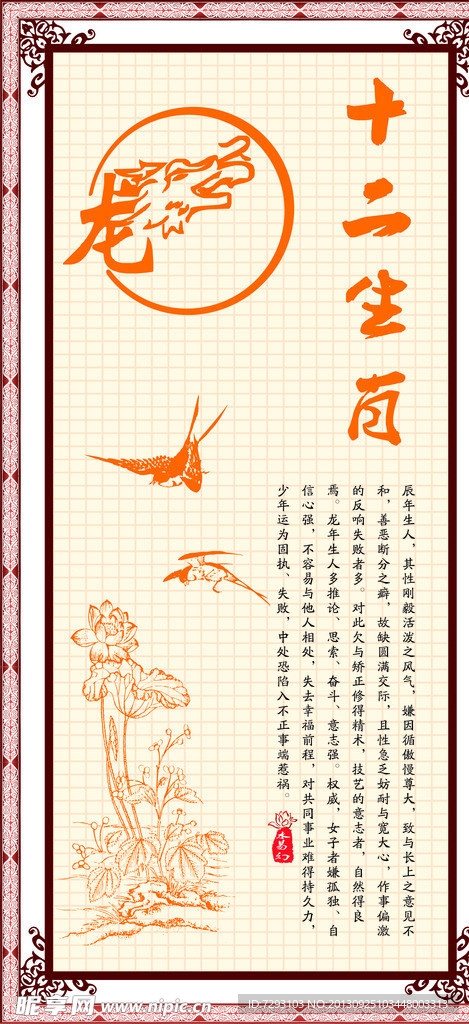 十二生肖
龙
辰年生人，其性刚毅活泼之风气，嫌因循傲慢尊大，致与长上之意见不
和，善恶断分之癖，故缺圆满交际，且性急乏妨耐与宽大心，作事偏激
的反响失败者多。对此欠与矫正修得精术，技艺的意志者，自然得良
焉。龙年生人多推论、思索、奋斗、意志强。权威，女子者嫌孤独、自
信心强，不容易与他人相处，失去幸福前程，对共同事业难得持久力，
少年运为固执、失败，中处恐陷入不正事端惹祸。
昵享网 www.nipic.cn
ID:7293103 NO:20130925103448003313